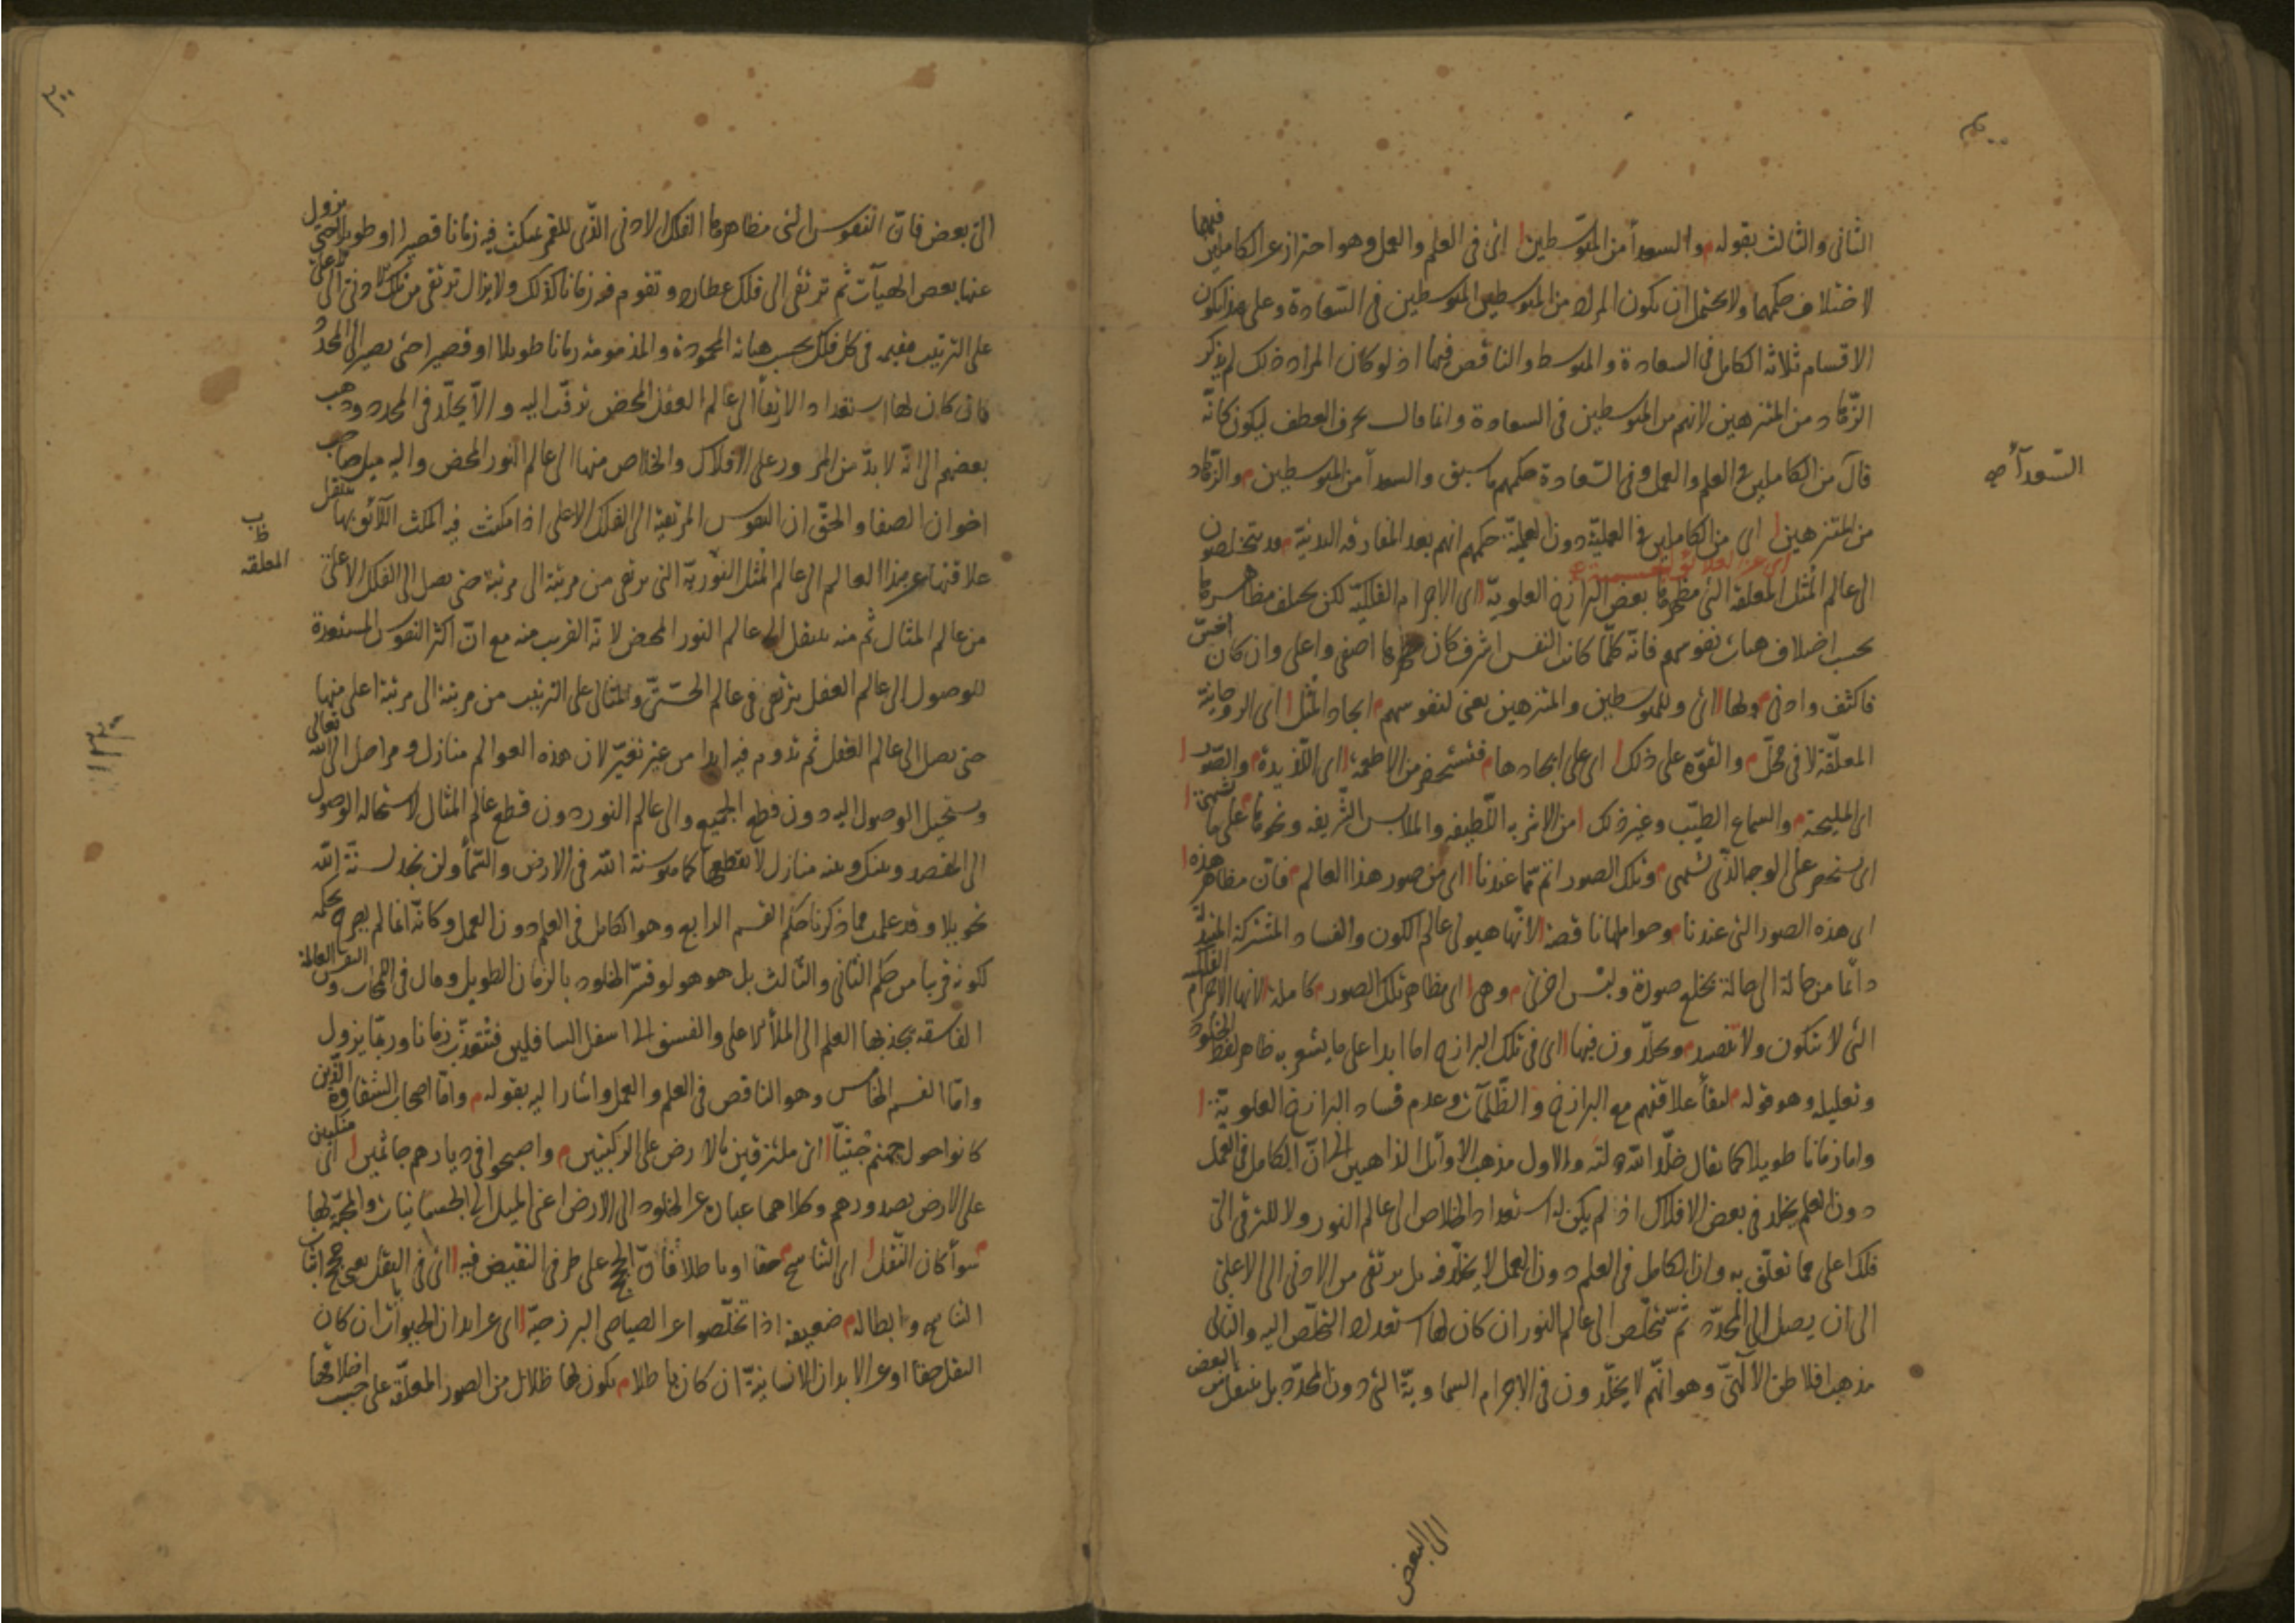 الثانى والثالث بقوله والسعدأ من المتوسطين اى فى العلم والعمل وهو احتراز عن الكاملين فيهما
لاختلاف حكمهما ولا يحتمل ان يكون المراد من المتوسطين المتوسطين فى السعادة وعلى هذا يكون
الاقسام ثلاثة الكامل فى السعادة والمتوسط والناقص فيها اذ لو كان المراد ذلك لم يذكر
الزهاد من المتنزهين لانهم من المتوسطين فى السعادة وانما قال بحرف العطف ليكون كانّه
قال من الكاملين فى العلم والعمل وفى السعادة حكمهم ما سبق والسعدأ من المتوسطين والزهاد
السّعدآء صح
من المتنزهين اى من الكاملين فى العمليّة دون العلميّة حكمهم انهم بعد المفارقه البدنيّة قد يتخلصون
اى عن العلائق
الى عالم المُثل المعلقة التى مظهرها بعض البرازخ العلويّة اى الاجرام الفلكيّة لكن يختلف مظاهرها
بحسب اختلاف هيئات نفوسهم فانّه كلّما كانت النفس اشرف كان مظهرها اصفى واعلى وان كان اخسّ
فاكثف وادنى ولها اى وللمتوسطين والمتنزهين يعنى لنفوسهم ايجاد المُثل اى الروحانيّة
المعلّقة لا فى محلّ والقوّة على ذلك اى على ايجادها فتستحضر من الاطعمة اى اللّذيذة والصّور
اى المليحة والسماع الطيّب وغير ذلك من الاشربه اللّطيفه والملابس الشّريفه ونحوها على ما تشتهى
اى يستحضر على الوجه الّذى تشتهى وتلك الصور اتم ممّا عندنا اى من صور هذا العالم فانّ مظاهر هذه
اى هذه الصور التى عندنا وحواملها ناقصة لانّها هيولى عالم الكون والفساد المشتركة المتبدلة
دائما من حالة الى حالة بخلع صورة ولبس اخرى وهى اى مظاهر تلك الصور كاملة لانها الاجرام الفلكيه
التى لا تتكون ولا تفسد ويخلّدون فيها اى فى تلك البرازخ اما ابدا على ما يشعر به ظاهر لفظ الخلود
وتعليله وهو قوله لبقأ علاقتهم مع البرازخ والظّلمآت وعدم فساد البرازخ العلويّة
واما زمانا طويلا كما يقال خلّد الله دولته والاول مذهب الاوائل الذاهبين الى انّ الكامل فى العمل
دون العلم يخلد فى بعض الافلاك اذ لم يكن له استعداد الخلاص الى عالم النور ولا للترقى الى
فلك اعلى مما تعلّق به وان الكامل فى العلم دون العمل لا يخلّد فيه بل يرتقى من الادنى الى الاعلى
الى ان يصل الى المحدّد ثمّ يتخلّص الى عالم النور ان كان لها استعداد التخلّص اليه والثانى
مذهب افلاطن الالٓهىّ وهو انّهم لا يخلّدون فى الاجرام السماويّة التى دون المحدّد بل ينتقل من البعض
الى البعض
الى بعض فانّ النفوس التى مظاهرها الفلك الادنى الّذى للقمر يمكث فيه زمانا قصيرا او طويلا حتى يزول
عنها بعض الهيآت ثم ترتقى الى فلك عطارد وتقوم فيه زمانا كذلك ولا يزال ترتقى من فلك ادنى الى اعلى
على الترتيب مقيمه فى كل فلك بحسب هيآته المحمودة والمذمومة زمانا طويلا او قصيرا حتى يصير الى المحدّد
فان كان لها استعداد الارتقأ الى عالم العقل المحض ترقّت اليه والّا يخلّد فى المحدد وذهب
بعضهم الى انّه لا بدّ من المرور على الافلاك والخلاص منها الى عالم النور المحض واليه ميل صاحب
اخوان الصفا والحقّ ان النفوس المرتقية الى الفلك الاعلى اذا مكثت فيه المكث اللّائق بها ينتقل
المعلقة
علاقتها عن هذا العالم الى عالم المُثل النوريّة التى يرتقى من مرتبة الى مرتبة حتى يصل الى الفلك الاعلى
من عالم المثال ثم منه ينتقل الى عالم النور المحض لانّه القريب منه مع انّ اكثر النفوس المستعدة
للوصول الى عالم العقل يرتقى فى عالم الحسّىّ والمثالى على الترتيب من مرتبة الى مرتبة اعلى منها
حتى يصل الى عالم العقل ثم تدوم فيه ابدا من غير تغيّر لان هذه العوالم منازل ومراحل الى الله تعالى
ويستحيل الوصول اليه دون قطع الجميع والى عالم النور دون قطع عالم المثال لاستحالة الوصول
الى المقصد وبينك وبينه منازل لا تقطعها كما هو سنة الله فى الارض والسّمأ ولن تجد لسنّة الله
تحويلا وقد علمت مما ذكرنا حكم القسم الرابع وهو الكامل فى العلم دون العمل وكانّه انما لم يصرح بحكمه
لكونه قريبا من حكم الثانى والثالث بل هو هو لو فسّر الخلود بالزمان الطويل وقال فى اللمحات والنفس العالمة
الفاسقة يجذبها العلم الى الملأ الاعلى والفسق الى اسفل السافلين فتتعذّب زمانا وربّما يزول
وامّا القسم الخامس وهو الناقص فى العلم والعمل واشار اليه بقوله وامّا اصحاب الشقاوة الّذين
كانوا حول جهنم جثيّا اى ملتزقين بالارض على الركبتين واصبحوا فى ديارهم جاثمين اى منكبين
على الارض بصدورهم وكلاهما عبارة عن الخلود الى الارض اعنى الميل الى الجسمانيات والمحبّة لها
سوأ كان النّقل اى التناسخ حقا او باطلا فانّ الحجج على طرفى النقيض فيه اى فى النقل يعنى حجج اثبات
التناسخ وابطاله ضعيفة اذا تخلّصوا عن الصياصى البرزخيّة اى عن ابدان الحيوانات ان كان
النقل حقا او عن الابدان الانسانيّة ان كان باطلا يكون لها ظلال من الصور المعلّقة على حسب اخلاقها